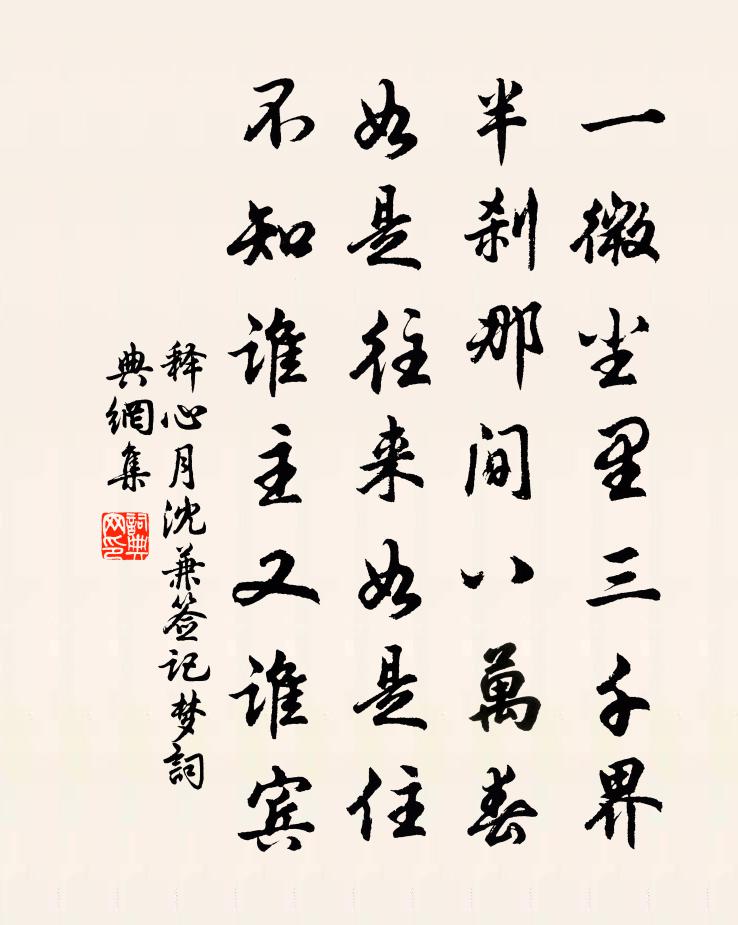 一微尘里三千界
半刹那间八萬春
如是往来如是住
不知谁主又谁宾
释心月沈兼签记梦詞
典網集
詞典
网印